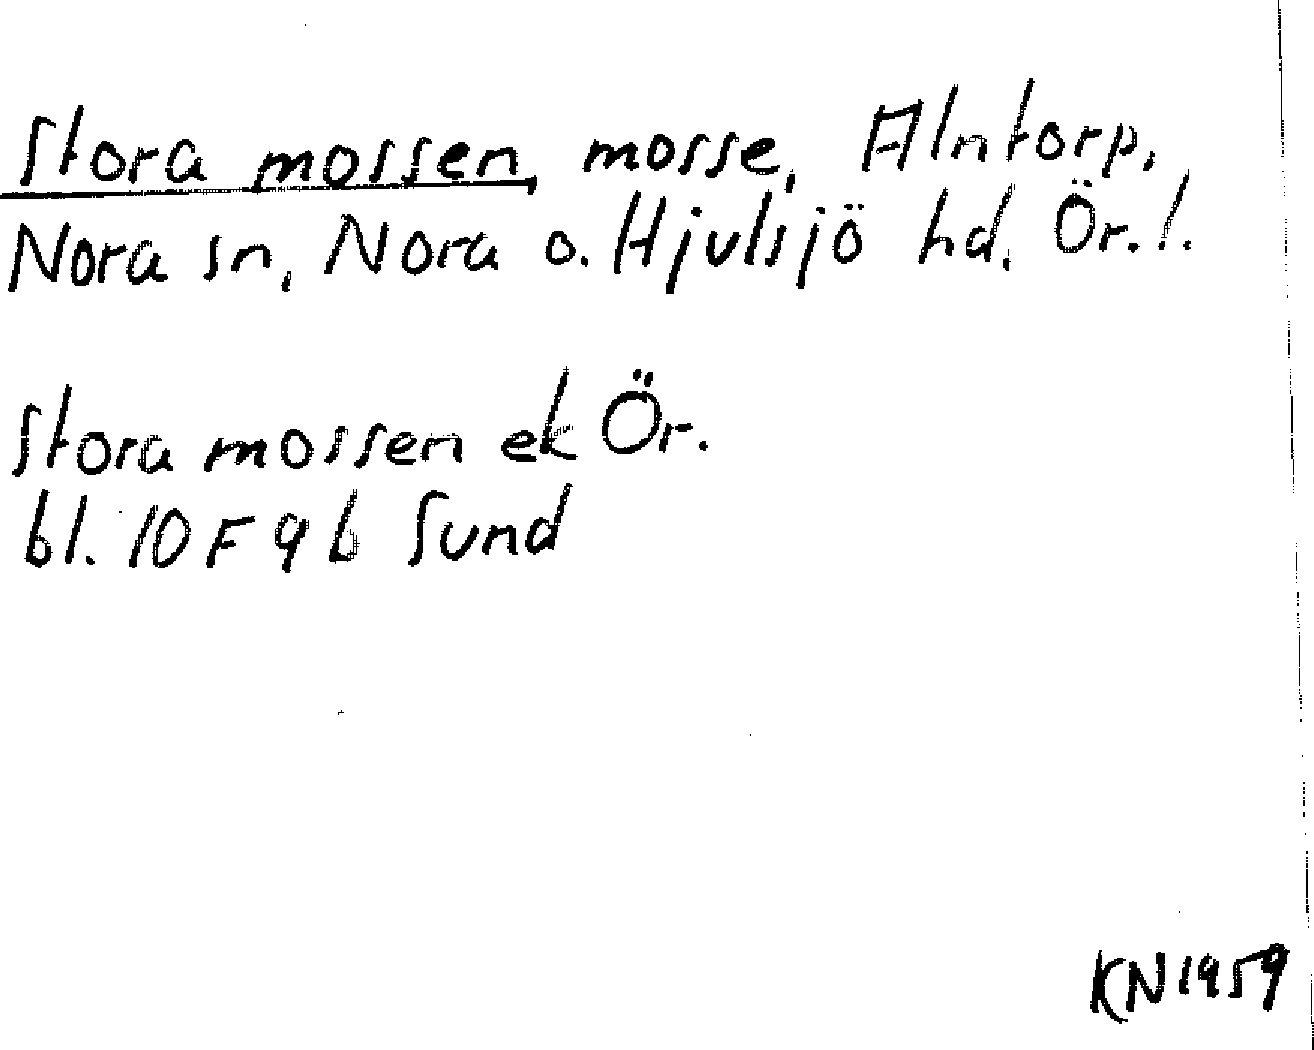 Stora mossen, mosse, Alntorp,
Nora sn, Nora o. Hjulsjö hd, Ör. l.
Stora mossen ek Ör.
bl. 10 F 9 b Sund
KN 1959